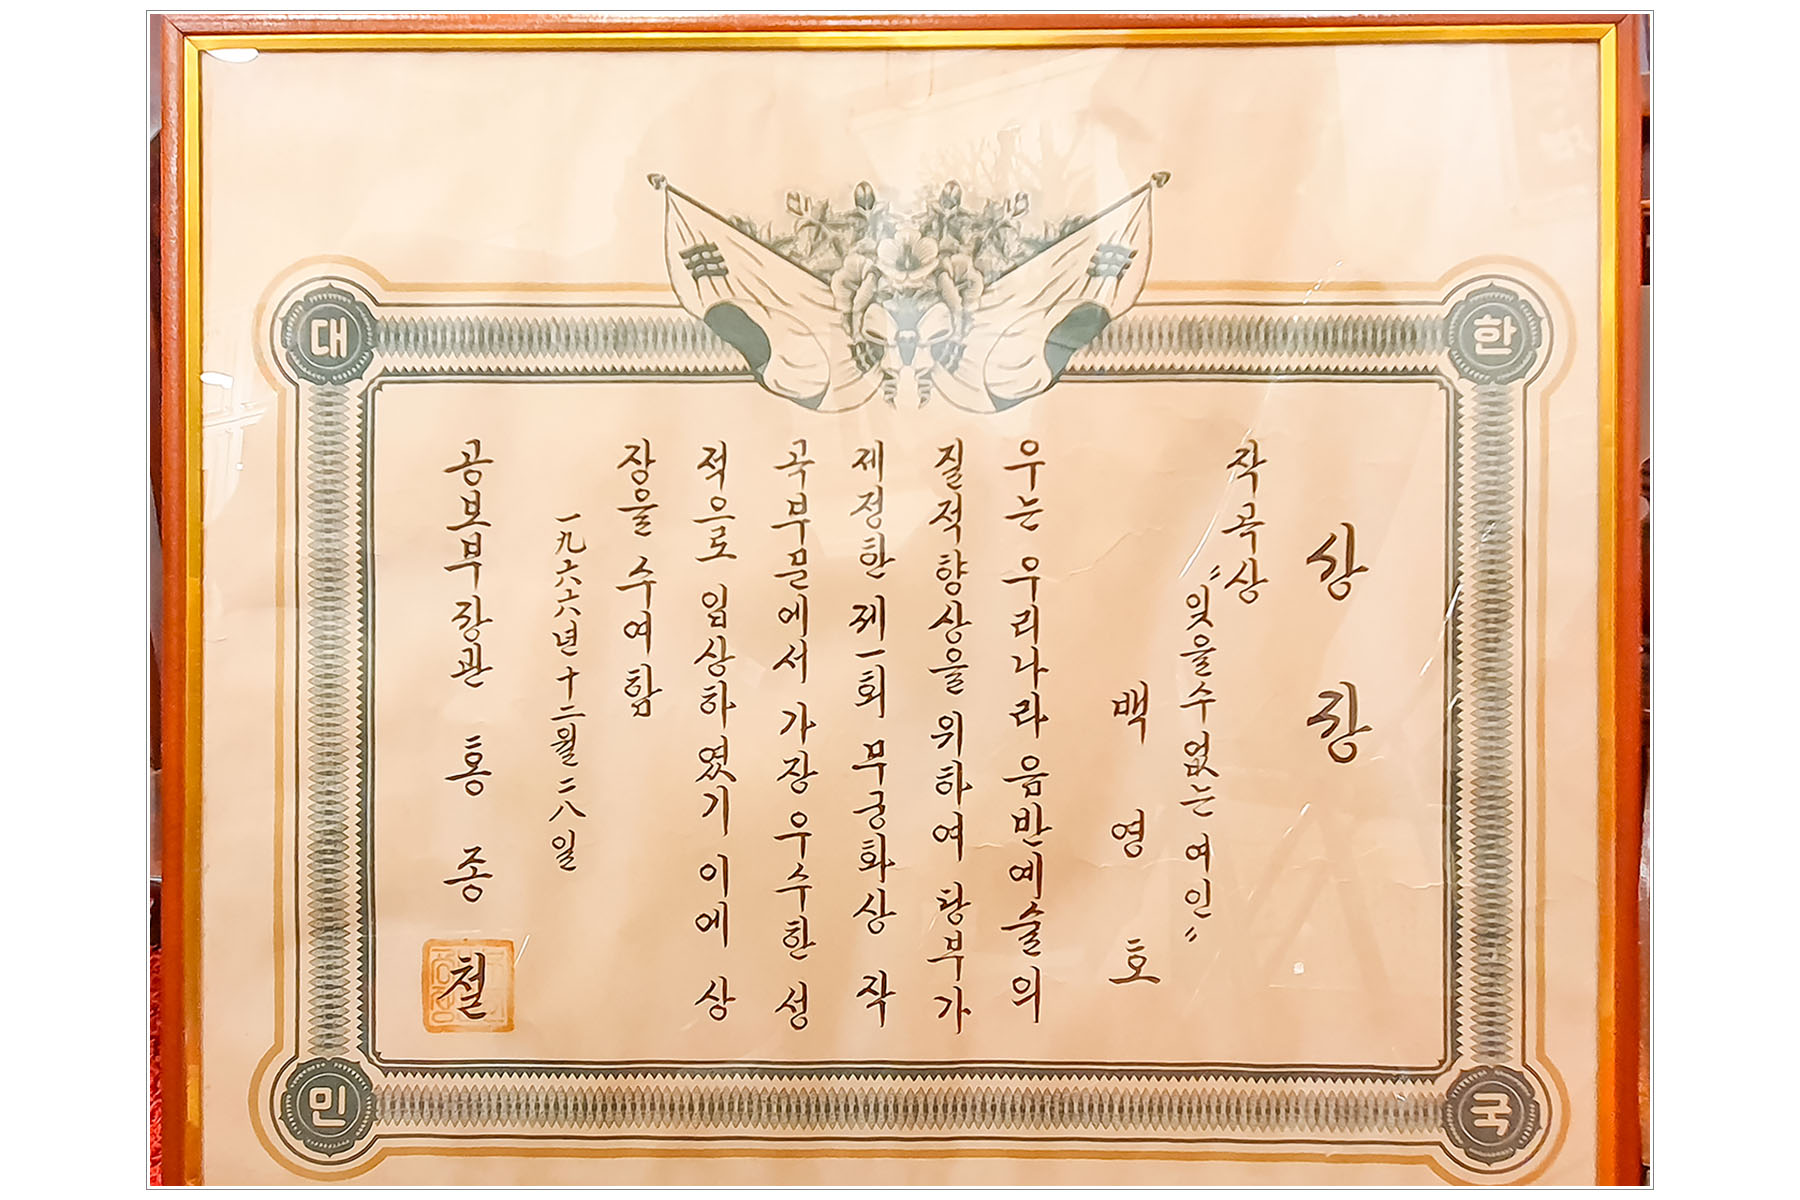 대한민국
상장
작곡상
"잊을수 없는 여인"
백영호
우는 우리나라 음반예술의
질적향상을 위하여 당부가
제정한 제一회 무궁화상 작
곡부문에서 가장 우수한 성
적으로 입상하였기 이에 상
장을 수여함
一九六六년 十二월 二八일
공보부장관 홍종철